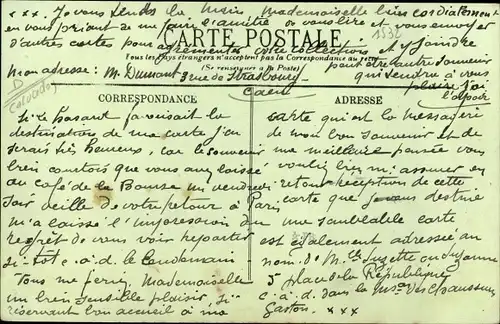 xxx Je vous tends la main Mademoiselle bien cordialement
en vous priant de me faire l'amitié de vous lire et vous envoyer
d'autres cartes pour agrémenter votre collection et y joindre
CARTE POSTALE
1532
Tous les pays étrangers n'acceptent pas la Correspondance au recto
(Se renseigner à la Poste)
peut-être l'autre souvenir
Mon adresse: M. Dumont rue de Strasbourg
qui tendre à vous
Caen
plaire j'ai
l'espoir
D
Calvados
CORRESPONDANCE
ADRESSE
Si le hasard favorisait la
destination de ma carte j'en
serais très heureux, car le souvenir
bien courtois que vous avez laissé
au café de la Bourse un vendredi
soir veille de votre retour à Paris
m'a laissé l'impression du
regret de vous voir repartir
si-tôt c.a.d. le lendemain
Vous me feriez, Mademoiselle
un bien sensible plaisir, si
réservant bon accueil à ma
carte qui est la messagère
de mon bon souvenir et de
ma meilleure pensée vous
vouliez bien m'assurer en
retour réception de cette
carte que je vous destine
une semblable carte
est également adressée au
nom d'M.lle Suzette
5 place de la République
c.a.d. dans la Chaussures
Gaston. xxx